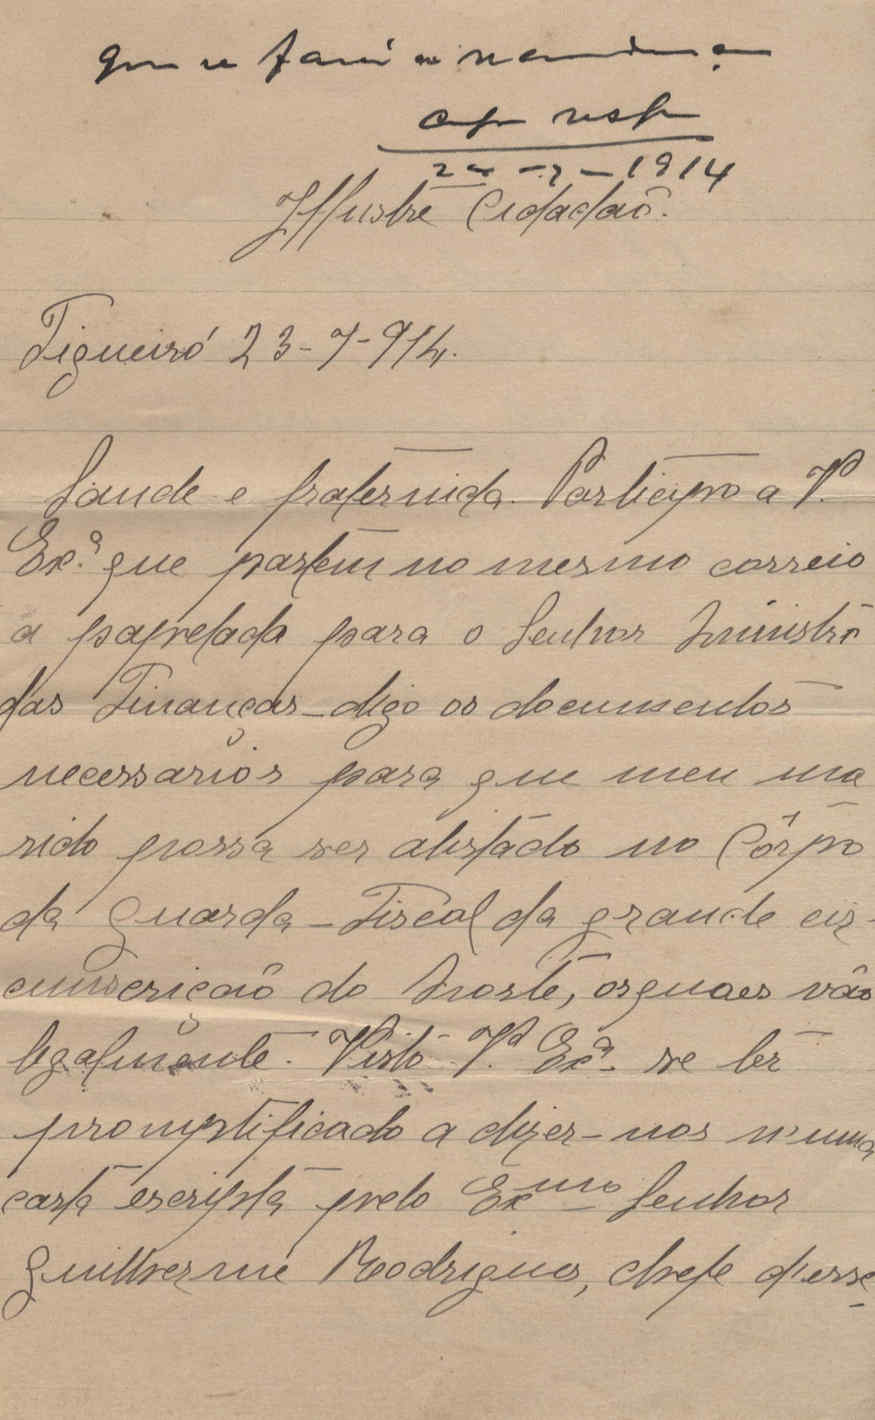 que se fará a
resp
24-7-1914
Illustre Cidadaõ.
Figueiró 23-7-914.
Saude e fraternida. Participo a V.
Ex.ª que partem no mesmo correio
a papelada para o Senhor Ministro
das Finanças - digo os documentos
necessarios para que meu ma
rido possa ser alistádo no Côrpo
da Guarda-Fiscal da grande cir-
cunscriçaõ do Norte, os quaes vão
legalmente. Visto V.ª Exª. se ter
promptificado a dizer-nos n'uma
carta escripta pelo Exmo Senhor
Guilherme Rodrigues, chefe d'esse